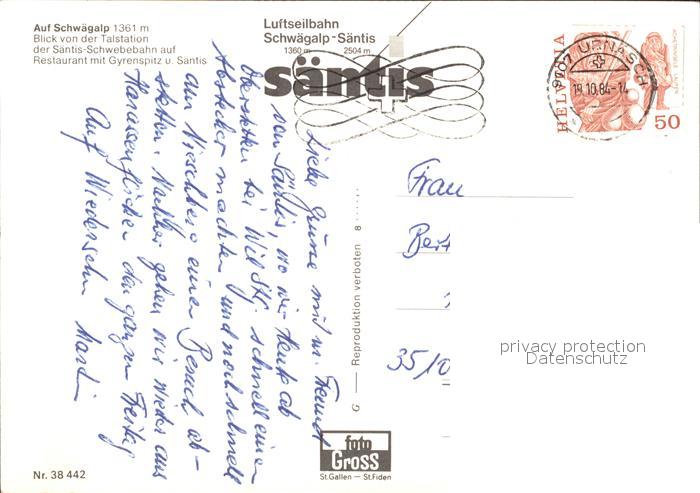 Auf Schwägalp 1361 m
Blick von der Talstation
der Säntis-Schwebebahn auf
Restaurant mit Gyrenspitz u. Säntis
Luftseilbahn
Schwägalp-Säntis
1360 m 2504 m
säntis
HELVETIA
50
9107 URNÄSCH
19.10.84-14
Liebe Grüsse mit m. Freund
vom Säntis, wo wir heute ab
bei Wil StG. schnell einen
Abstecher machten und noch schnell
am einen Besuch ab-
statten. Nachher gehen wir wieder aus
den ganzen Freitag
Auf Wiedersehn
Frau
35/10
Reproduktion verboten 8
G
foto
Gross
St.Gallen — St.Fiden
Nr. 38 442
privacy protection
Datenschutz